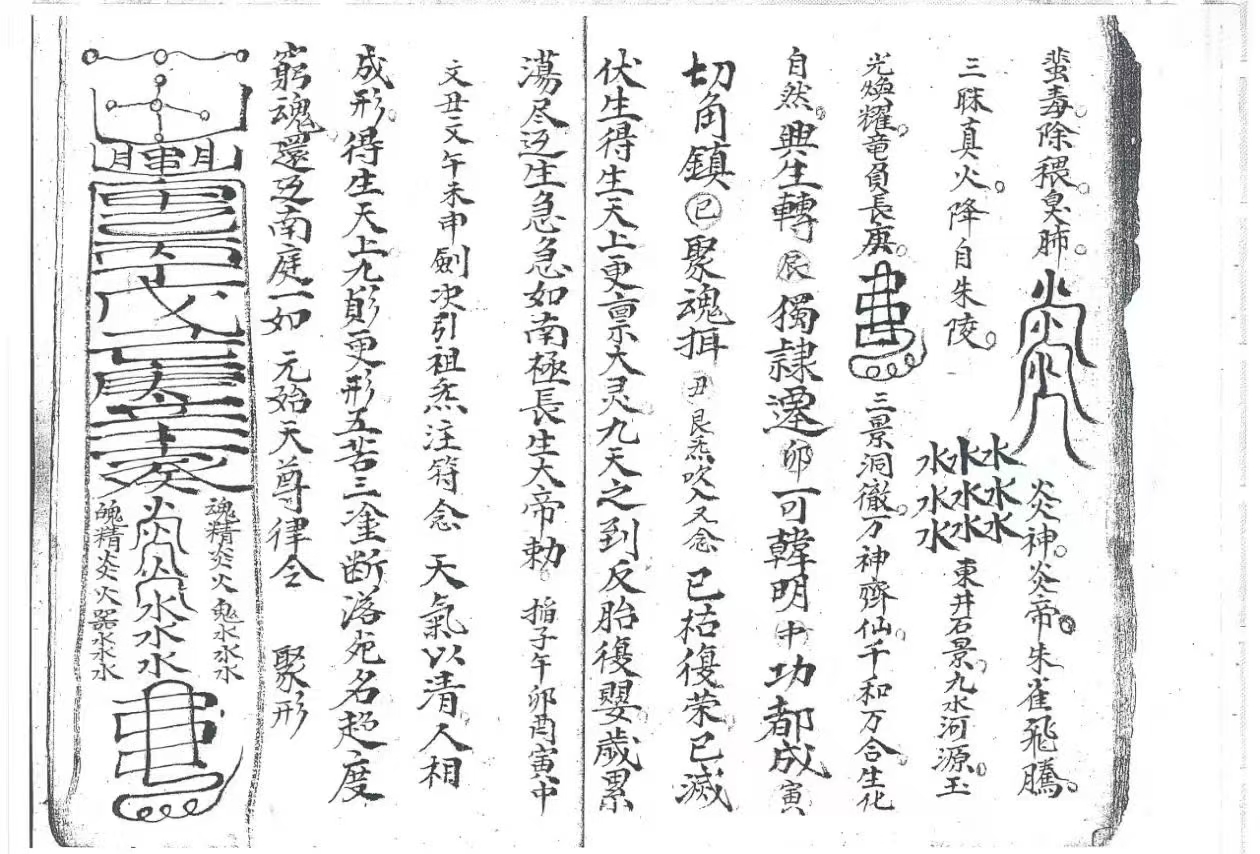 蜚毒除穢臭肺炎神炎帝朱雀飛騰
三昧真火降自朱陵水水水水水水水水水東井石景九水河源玉
光煥耀竜負長庚三景洞徹万神齊仙千和万合生化
自然興生轉辰獨隷遷卯可韓明中功都成寅
切角鎮已聚魂揖丑艮炁吹入又念已枯復荣已滅
伏生得生天上更亶示大灵九天之到反胎復嬰歳累
蕩尽迈生急急如南極長生大帝勅掐子午卯酉寅中
文丑二文午未申劍次引祖炁注符念天氣以清人相
成形得生天上九更形五苦三塗断落死名超度
窮魂還迈南庭一如元始天尊律令聚形
魂精炎火鬼水水水
水水水
魄精炎火器水水水